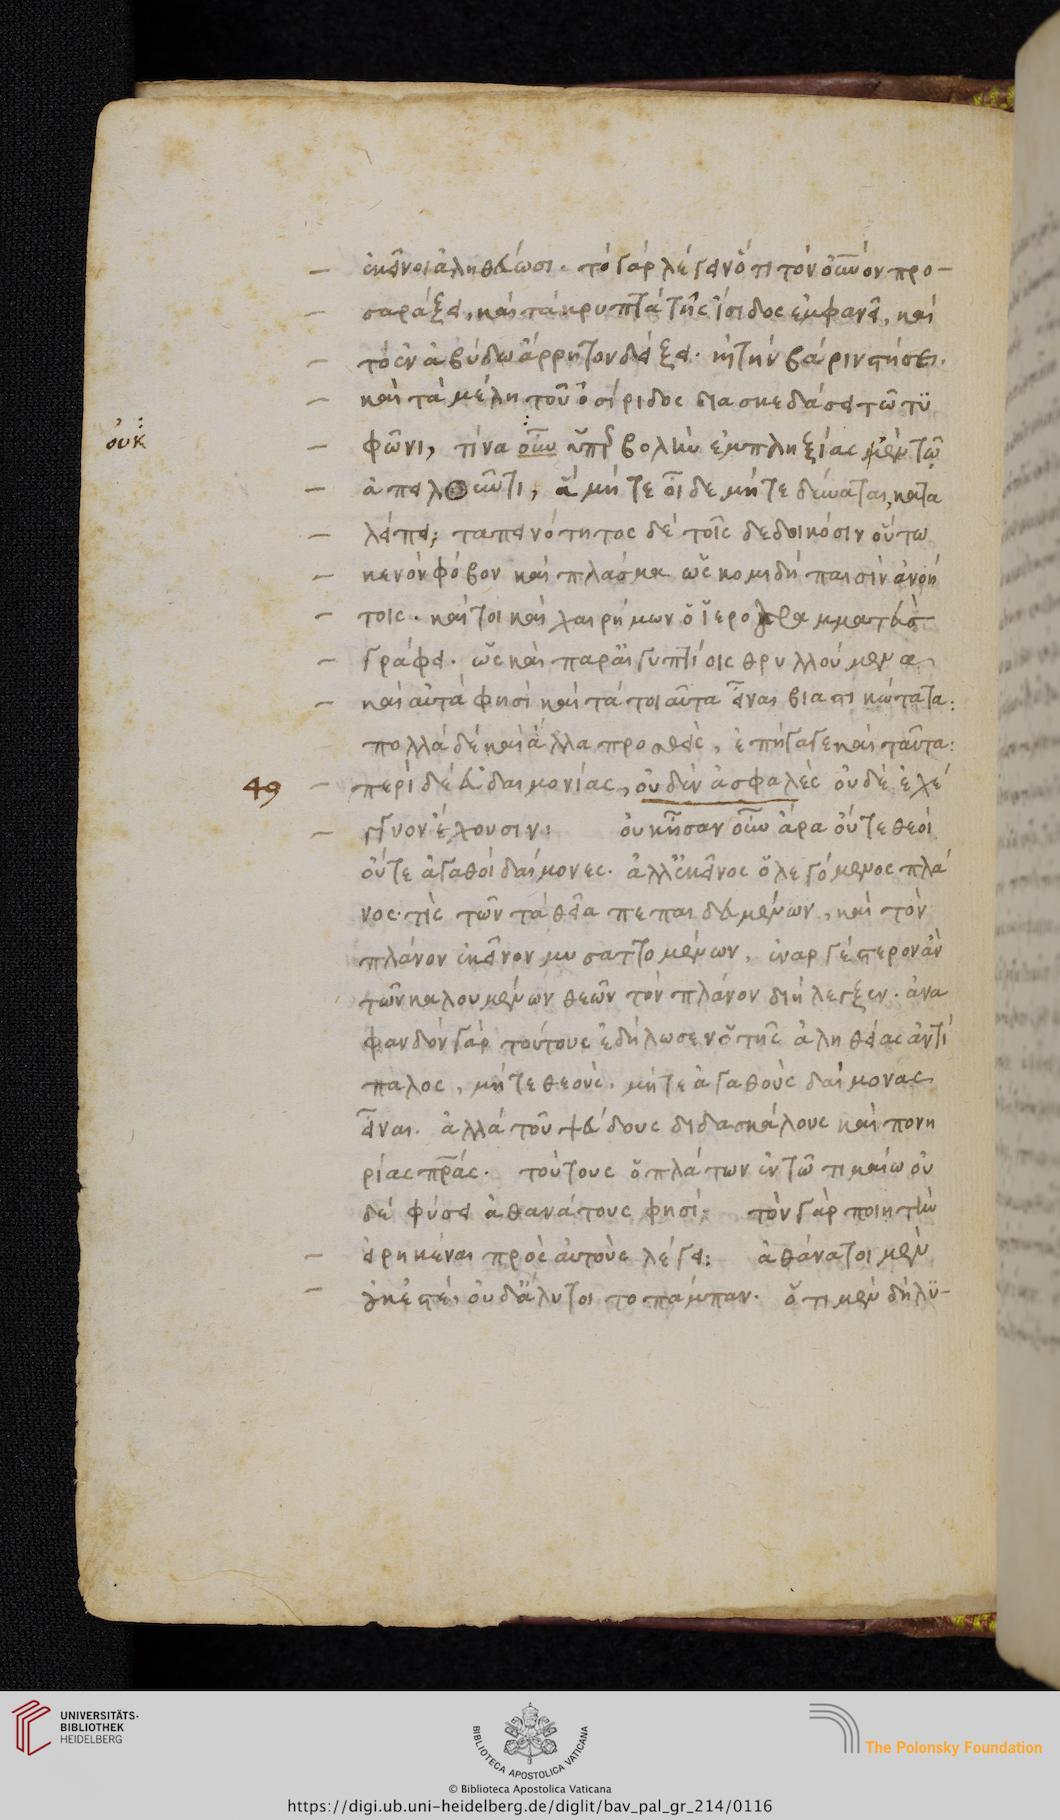 ἐκεῖνοι ἀληθεύωσι. τὸ γὰρ λέγειν ὅτι τὸν οὐνὸν προ-
σαράξει, καὶ τὰ κρυπτὰ τῆς ἴσιδος ἐμφανεῖ, καὶ
τὸ ἐν ἀβύδω ἄρρητον δείξει. ἢ τὴν βάριν στήσει.
καὶ τὰ μέλη τοῦ ὀσίριδος διασκεδάσει τῶ τυ
οὐκ
φῶνι, τίνα οὖν ὑπερβολὴν ἐμπληξίας μὲν τῶ
ἀπειλοῦντι, ἃ μήτε οἶδε μήτε δύναται, κατα
λείπει; ταπεινότητος δὲ τοῖς δεδοικόσιν οὕτω
κενὸν φόβον καὶ πλάσμα ὡς κομιδῆ παισὶν ἀνοή
τοις. καίτοι καὶ χαιρήμων ὁ ἱερογραμματεὺς
γράφει. ὡς καὶ παρ' αἰγυπτίοις θρυλλούμενα
καὶ αὐτὰ φησὶ καὶ τὰ τοιαῦτα εἶναι βιαστικώτατα:
πολλὰ δὲ καὶ ἄλλα προσθεὶς, ἐπήγαγε καὶ ταῦτα:
49
περὶ δὲ εὐδαιμονίας, οὐδὲν ἀσφαλὲς οὐδὲ ἐχέ
γγυον ἔχουσιν: οὐκ ἦσαν οὖν ἄρα οὔτε θεοὶ
οὔτε ἀγαθοὶ δαίμονες. ἀλλ' ἐκεῖνος ὁ λεγόμενος πλά
νος. τίς τῶν τὰ θεῖα πεπαιδευμένων, καὶ τὸν
πλάνον ἐκεῖνον μυσαττομένων, ἐναργέστερον ἂν
τῶν καλουμένων θεῶν τὸν πλάνον διήλεγξεν. ἀνα
φανδὸν γὰρ τούτους ἐδήλωσεν ὁ τῆς ἀληθείας ἀντί
παλος, μήτε θεοὺς. μήτε ἀγαθοὺς δαίμονας
εἶναι. ἀλλὰ τοῦ ψεύδους διδασκάλους καὶ πονη
ρίας πρας. τούτους ὁ πλάτων ἐν τῶ τιμαίω οὐ
δὲ φύσει ἀθανάτους φησί. τὸν γὰρ ποιητὴν
εἰρηκέναι πρὸς αὐτοὺς λέγει: ἀθάνατοι μὲν
οὐκ ἐστέ. οὐδ' ἄλυτοι το πάμπαν. ὅτι μὲν δὴ λυ-
UNIVERSITÄTS-
BIBLIOTHEK
HEIDELBERG
BIBLIOTECA APOSTOLICA VATICANA
The Polonsky Foundation
© Biblioteca Apostolica Vaticana
https://digi.ub.uni-heidelberg.de/diglit/bav_pal_gr_214/0116